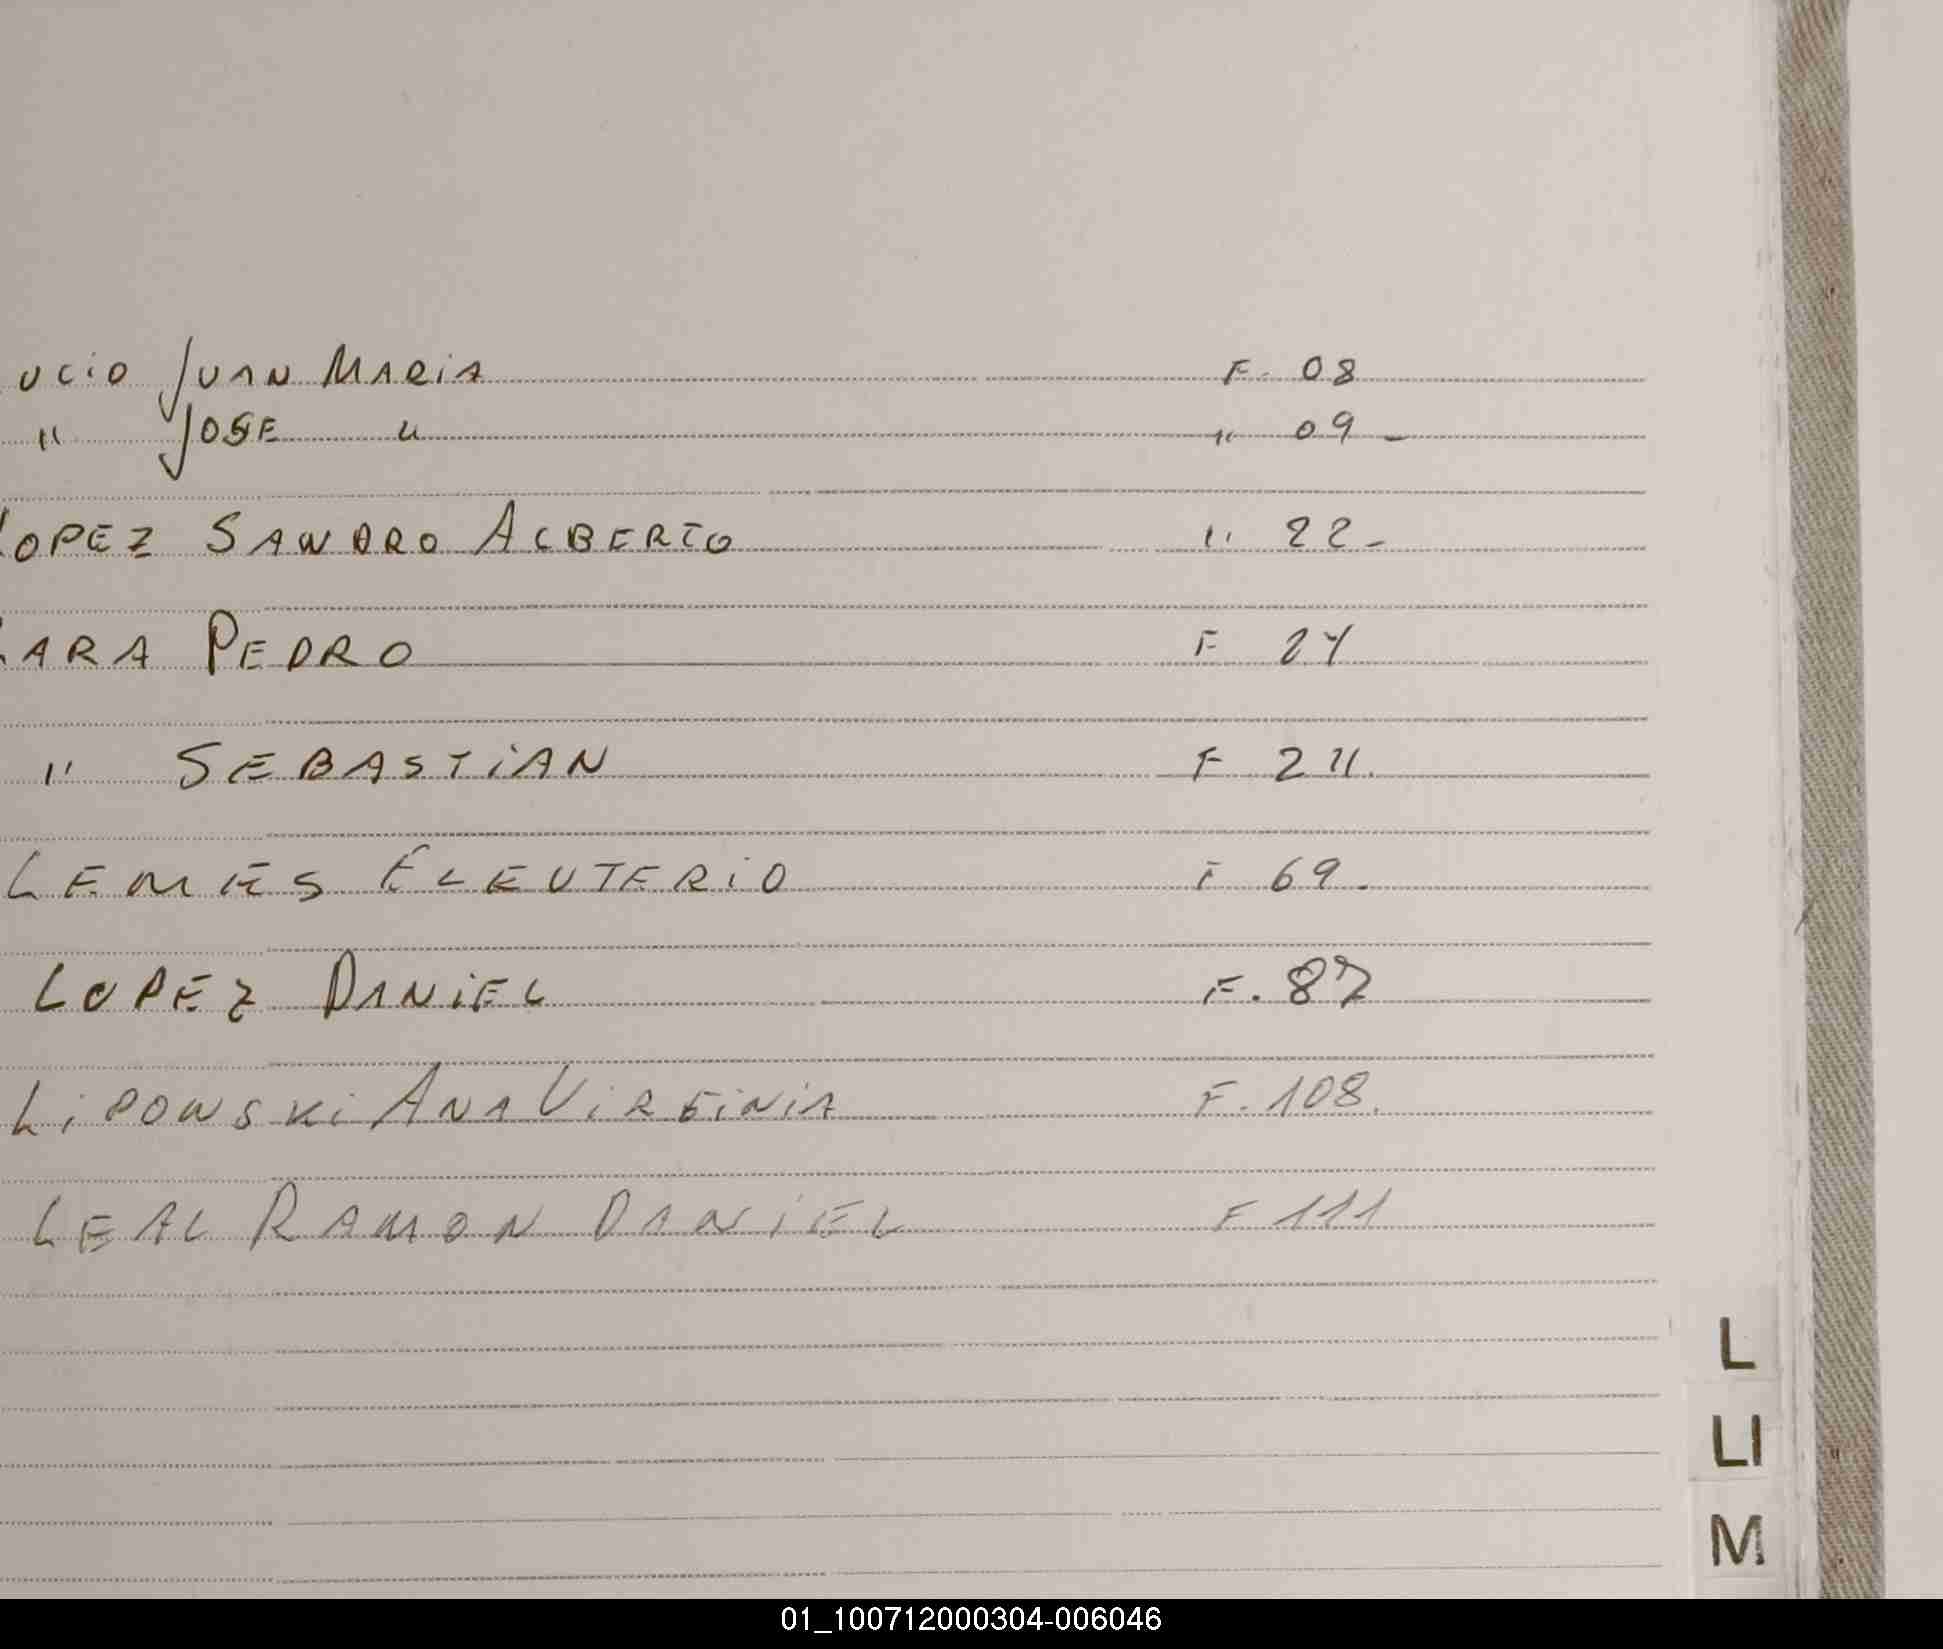 ucio Juan Maria F. 08
" Jose " " 09 -
Lopez Sandro Alberto " 22 -
Lara Pedro F 24
" Sebastian F 24.
Lemes Eleuterio F 69.
Lopez Daniel F. 87
Lipowski Ana Virginia F. 108.
Leal Ramon Daniel F 111
L
LI
M
01_100712000304-006046